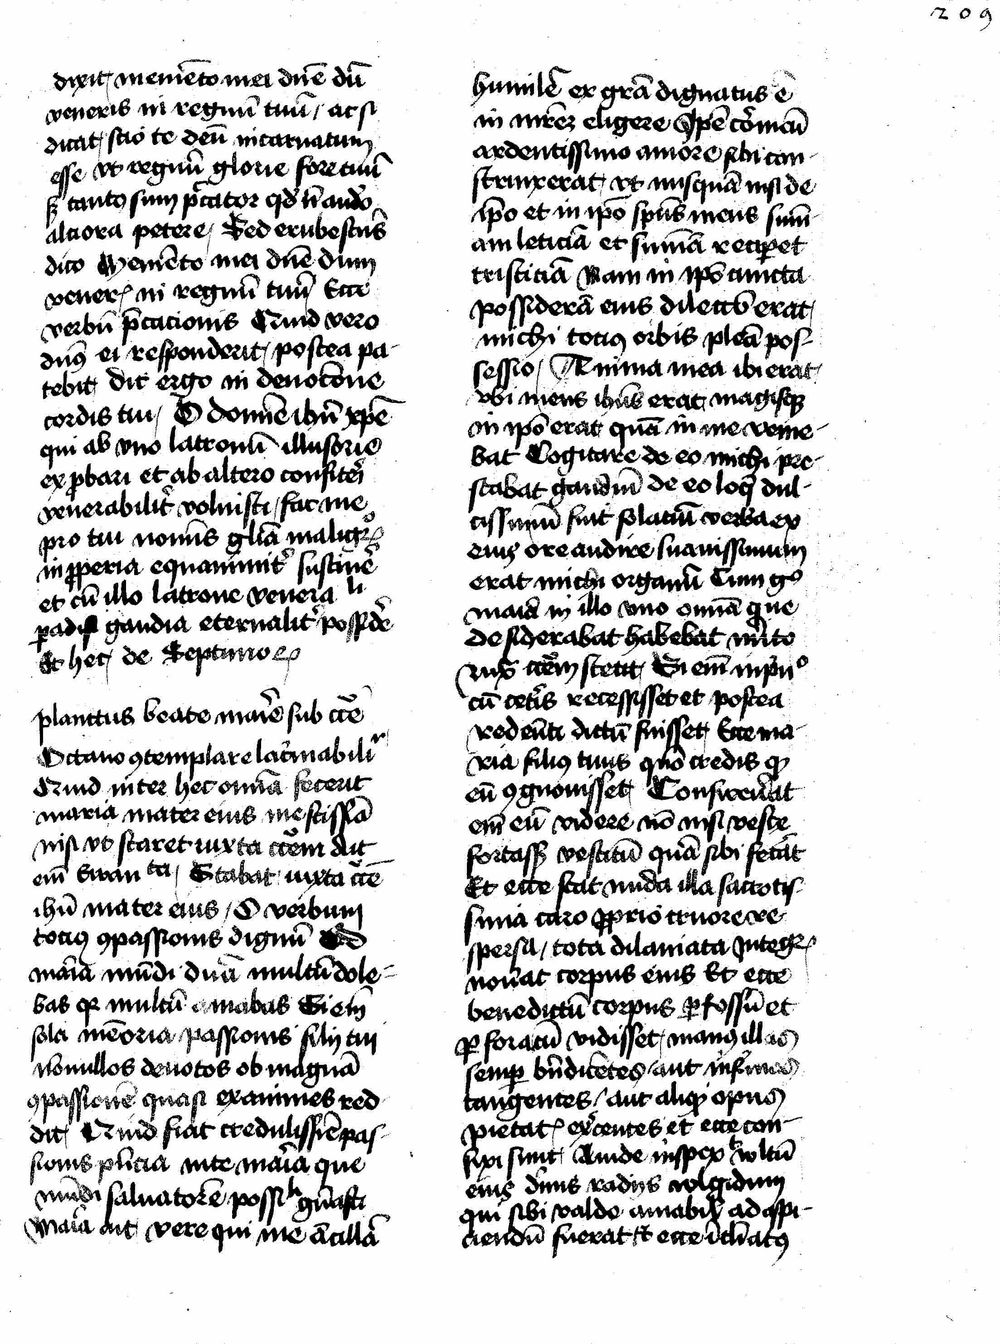 209
dixit memēto mei dn̄e dū
veneris in regnū tuū / ac si
dicat scio te deū incarnatum
esse vt regnū glorie fore tuū
tanto sum pctator qd n̄ audo
alciora petere / Sed erubescēs
dico Memēto mei dn̄e dum
vener in regnū tuū Ecce
verbū p̄cacionis Quid vero
dn̄s ei responderit / postea pa-
tebit dic ergo in deuotōne
cordis tui / O domīe ihū xp̄e
qui ab vno latronū illusorie
exp̱bari et ab altero confiteri
venerabilit̾ voluisti / fac me
pro tui nom̄is glīa malign̾
inp̱peria equanimit̾ sustinē
et cū illo latrone venera li
p̱adisi gaudia eternalit̾ possidē
Et hec de Septimo
planctus beate marīe sub cc̄e
Octauo ɔtemplare lacr̄mabilit̾
Quid inter hec om̄īa fecerit
maria mater eius mestissīa
nisi vt staret iuxta cc̄em dūt
em̄ Ewan ta / Stabat iuxta cc̄e
ihū mater eius / O verbum
tocius ɔpassionis dignū
marīa mūdi dn̄a multū dole-
bas qr multū amabas Si em̄
sola memoria passionis filij tui
nōnullos deuotos ob magnā
ɔpassionē quasi exanimes red-
dit / Quid fiat credulissīe pas-
sionis pn̄cia in te marīa que
mūdi saluatorē possi li gn̄asti
Maria ait vere qui me ācillā
humilē ex grā dignatus ē
in mr̄ez eligere Ipē cor meū
ardentissimo amore sibi con-
strinxerat vt nusquā nisi de
ip̄o et in ip̄o spūs meus sum-
am leticīā et sūmā recip̱et
tristiciā Nam in ip̄o cuncta
possiderā eius dilectō erat
michi tocius orbis plēa pos-
sessio / Anima mea ibi erat
vbi meus ihūs erat magisq̄
in ip̄o erat quā in me veme-
bat Cogitare de eo michi pre-
stabat gaudiū de eo loq̄ dul-
cissimū fuit solaciū verba ex
eius ore audire suauissimum
erat michi organū Cum go
maīa in illo vno omīa que
desiderabat habebat m̄ito
iux̄ cc̄em stetit Si em̄ in p̄no
cū cet̄is recessisset et postea
redeūti dictū fuisset Ecce ma-
ria filius tuus quō credis qd
eū ɔgnouisset Consweu̾at
em̄ eū videre nō nisi veste
fortasß vestitū quā sibi fecāt
Et ecce stat nuda illa sacratis-
sima caro p̱prio cruore re-
spersa / tota dilaniata Integr̾
nou̾at corpus eius Et ecce
benedictū corpus p̱fossū et
p̱foratū vidisset / manus illas
semp̱ bn̄dicētes / aut infirmos
tangentes / aut aliq̄ opus
pietatis ex̾centes et ecce con-
fixi sunt Aude inspex̾ vultū
eius diuīs radijs volgidum
qui sibi valde amabil̾ ad aspi-
ciendū fuerat et ecce īclīatus